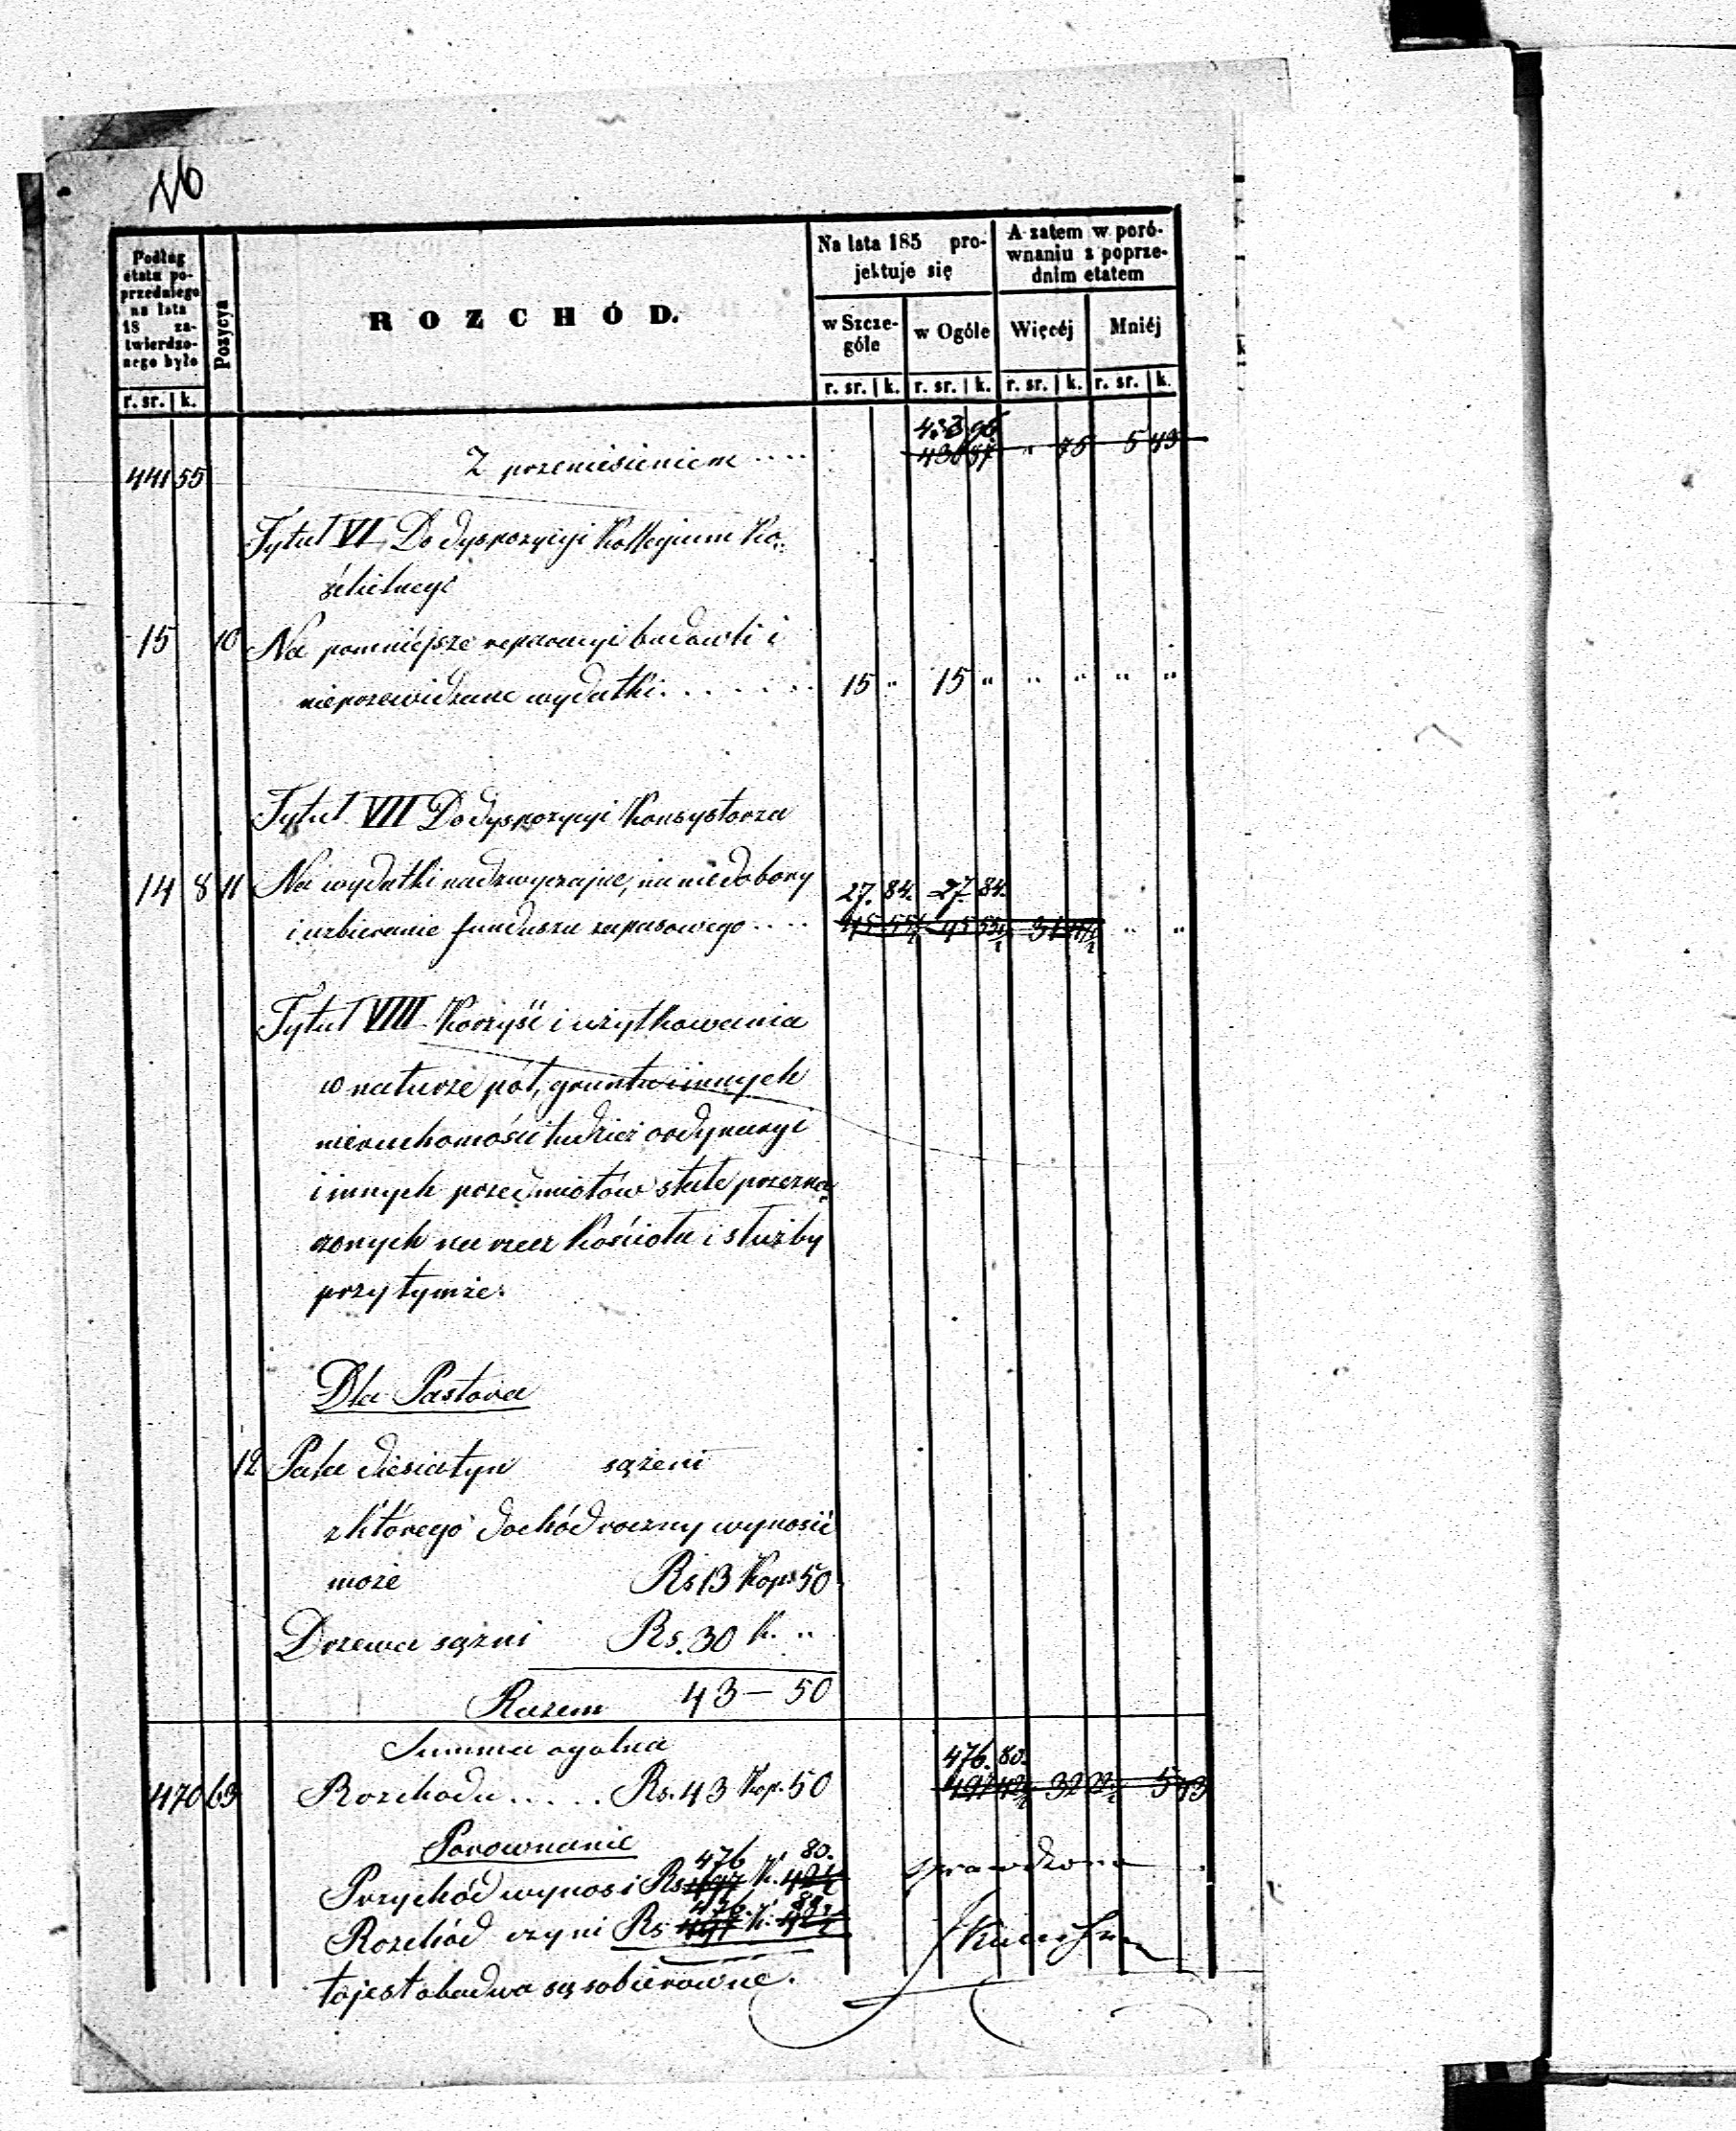 16
Podług etatu poprzedniego na lata 18 zatwierdzonego było
Pozycya
ROZCHÓD.
Na lata 185 projektuje się
A zatem w porównaniu z poprzednim etatem
w Szczególe
w Ogóle
Więcéj
Mniéj
r. sr. k. r. sr. k. r. sr. k. r. sr. k. r. sr. k.
433 96
441 55 Z przeniesieniem .... 436 87 " 75 5 43
Tytuł VI Do dyspozycyi Kollegium Ko-
ścielnego
15 10 Na pomniéjsze reparacyi budowli i
nieprzewidziane wydatki....... 15 " 15 " " " " "
Tytuł VII Do dyspozycyi Konsystorza
14 8 11 Na wydatki nadzwyczajne, na niedobory 27. 84. 27. 84.
i uzbieranie funduszu zapasowego .... 45 55½ 45 55½ 31 47½ " "
Tytuł VIII Korzyść i użytkowania
w naturze pól, gruntu i innych
nieruchomości tudzież ordynaryi
i innych przedmiotów stale przezna-
czonych na rzecz Kościoła i służby
przy tymże.
Dla Pastora
12 Pola diesiatyn sążeni
z którego dochód roczny wynosić
może Rs 13 Kop 50
Drzewa sążni Rs. 30 K. "
Razem 43 — 50
Summa ogólna 476. 80.
470 63 Rozchodu ..... Rs. 43 Kop. 50 497 42½ 32 22½ 5 43
Porownanie
476 80.
Przychód wynosi Rs 497 K. 42½ Sprawdzono
476. 80.
Rozchód czyni Rs 497 K. 42½
to jest obadwa są sobie rowne.